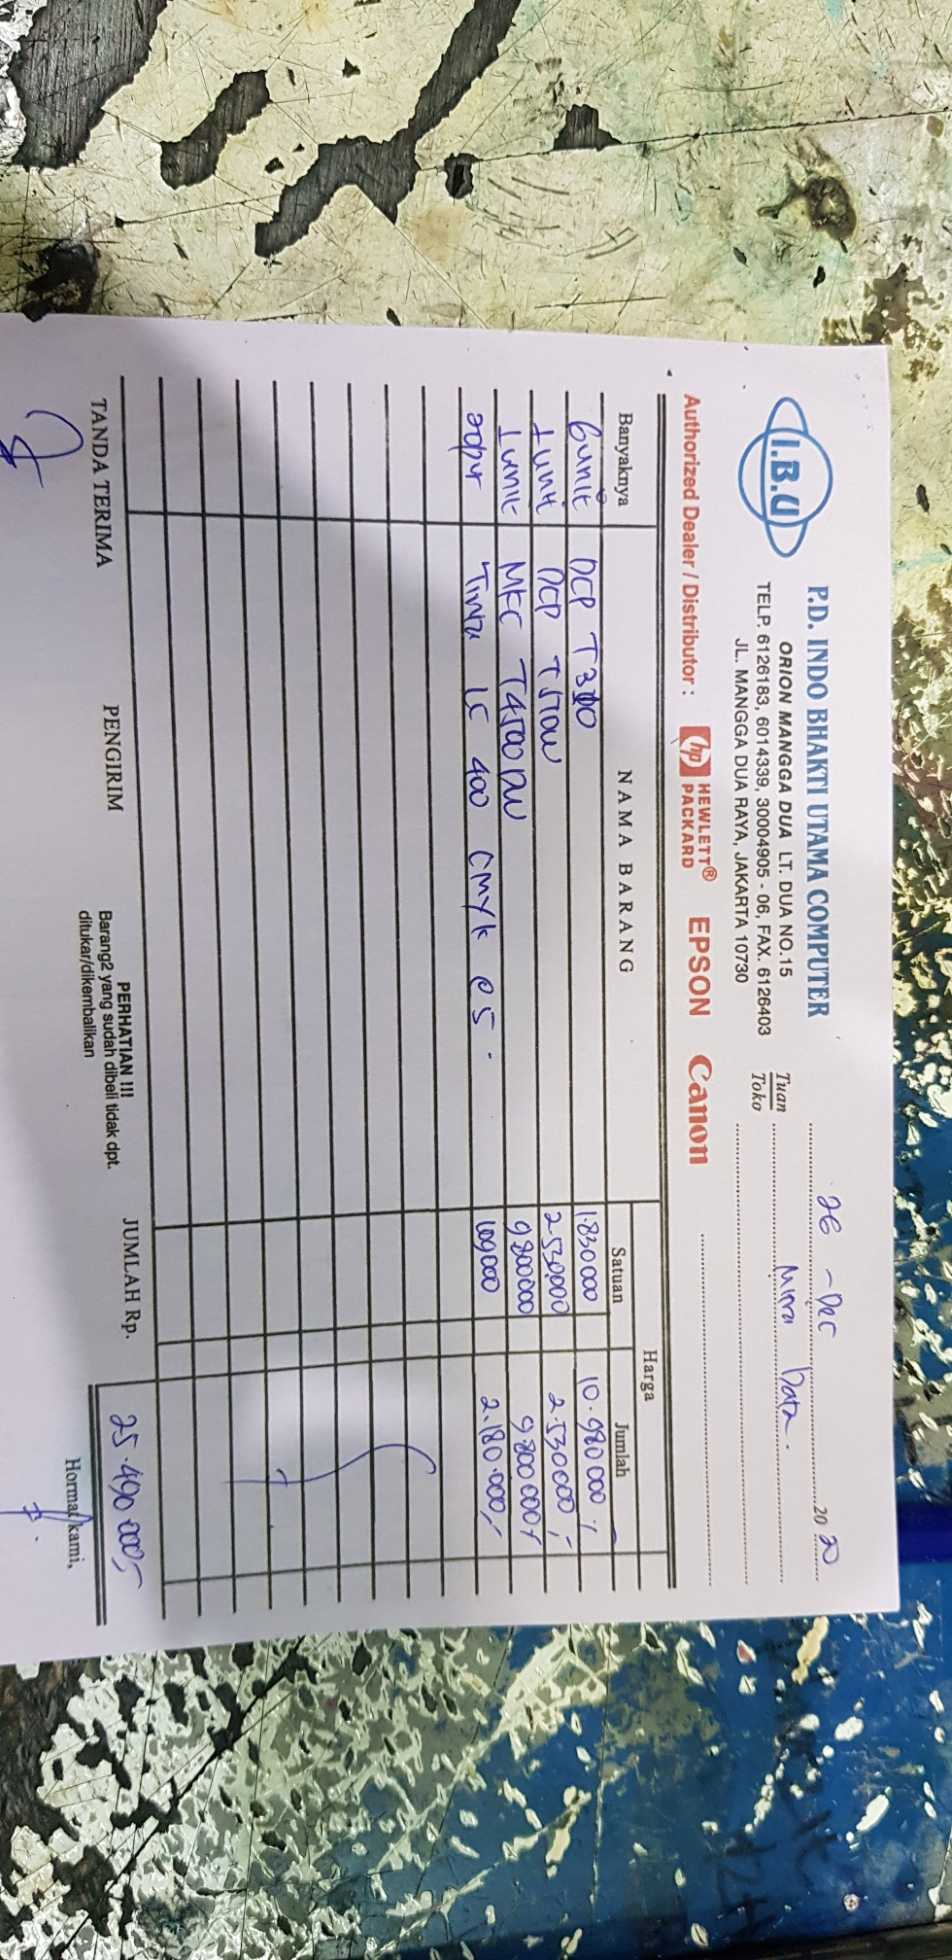 I.B.U
P.D. INDO BHAKTI UTAMA COMPUTER
ORION MANGGA DUA LT. DUA NO.15
TELP. 6126183, 6014339, 30004905 - 06, FAX. 6126403
JL. MANGGA DUA RAYA, JAKARTA 10730
26 - Dec 20 20
Tuan
Toko
Mitra Data.
Authorized Dealer / Distributor : hp HEWLETT® PACKARD EPSON Canon
Banyaknya NAMA BARANG Harga
Satuan Jumlah
6 unit DCP T310 1.830000 10.980000,-
1 unit DCP T510W 2.530000 2.530000,-
1 unit MFC T4500DW 9800000 9800000,-
20pc Tinta LC 400 CMYK @5. 109000 2.180.000,-
TANDA TERIMA PENGIRIM
PERHATIAN !!!
Barang2 yang sudah dibeli tidak dpt.
ditukar/dikembalikan
JUMLAH Rp. 25.490.000,-
Hormat kami,